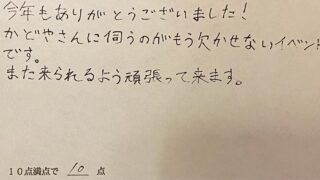 今年もありがとうございました!
かどやさんに伺うのがもう欠かせないイベント
です。
また来られるよう頑張って来ます。
10点満点で 10 点